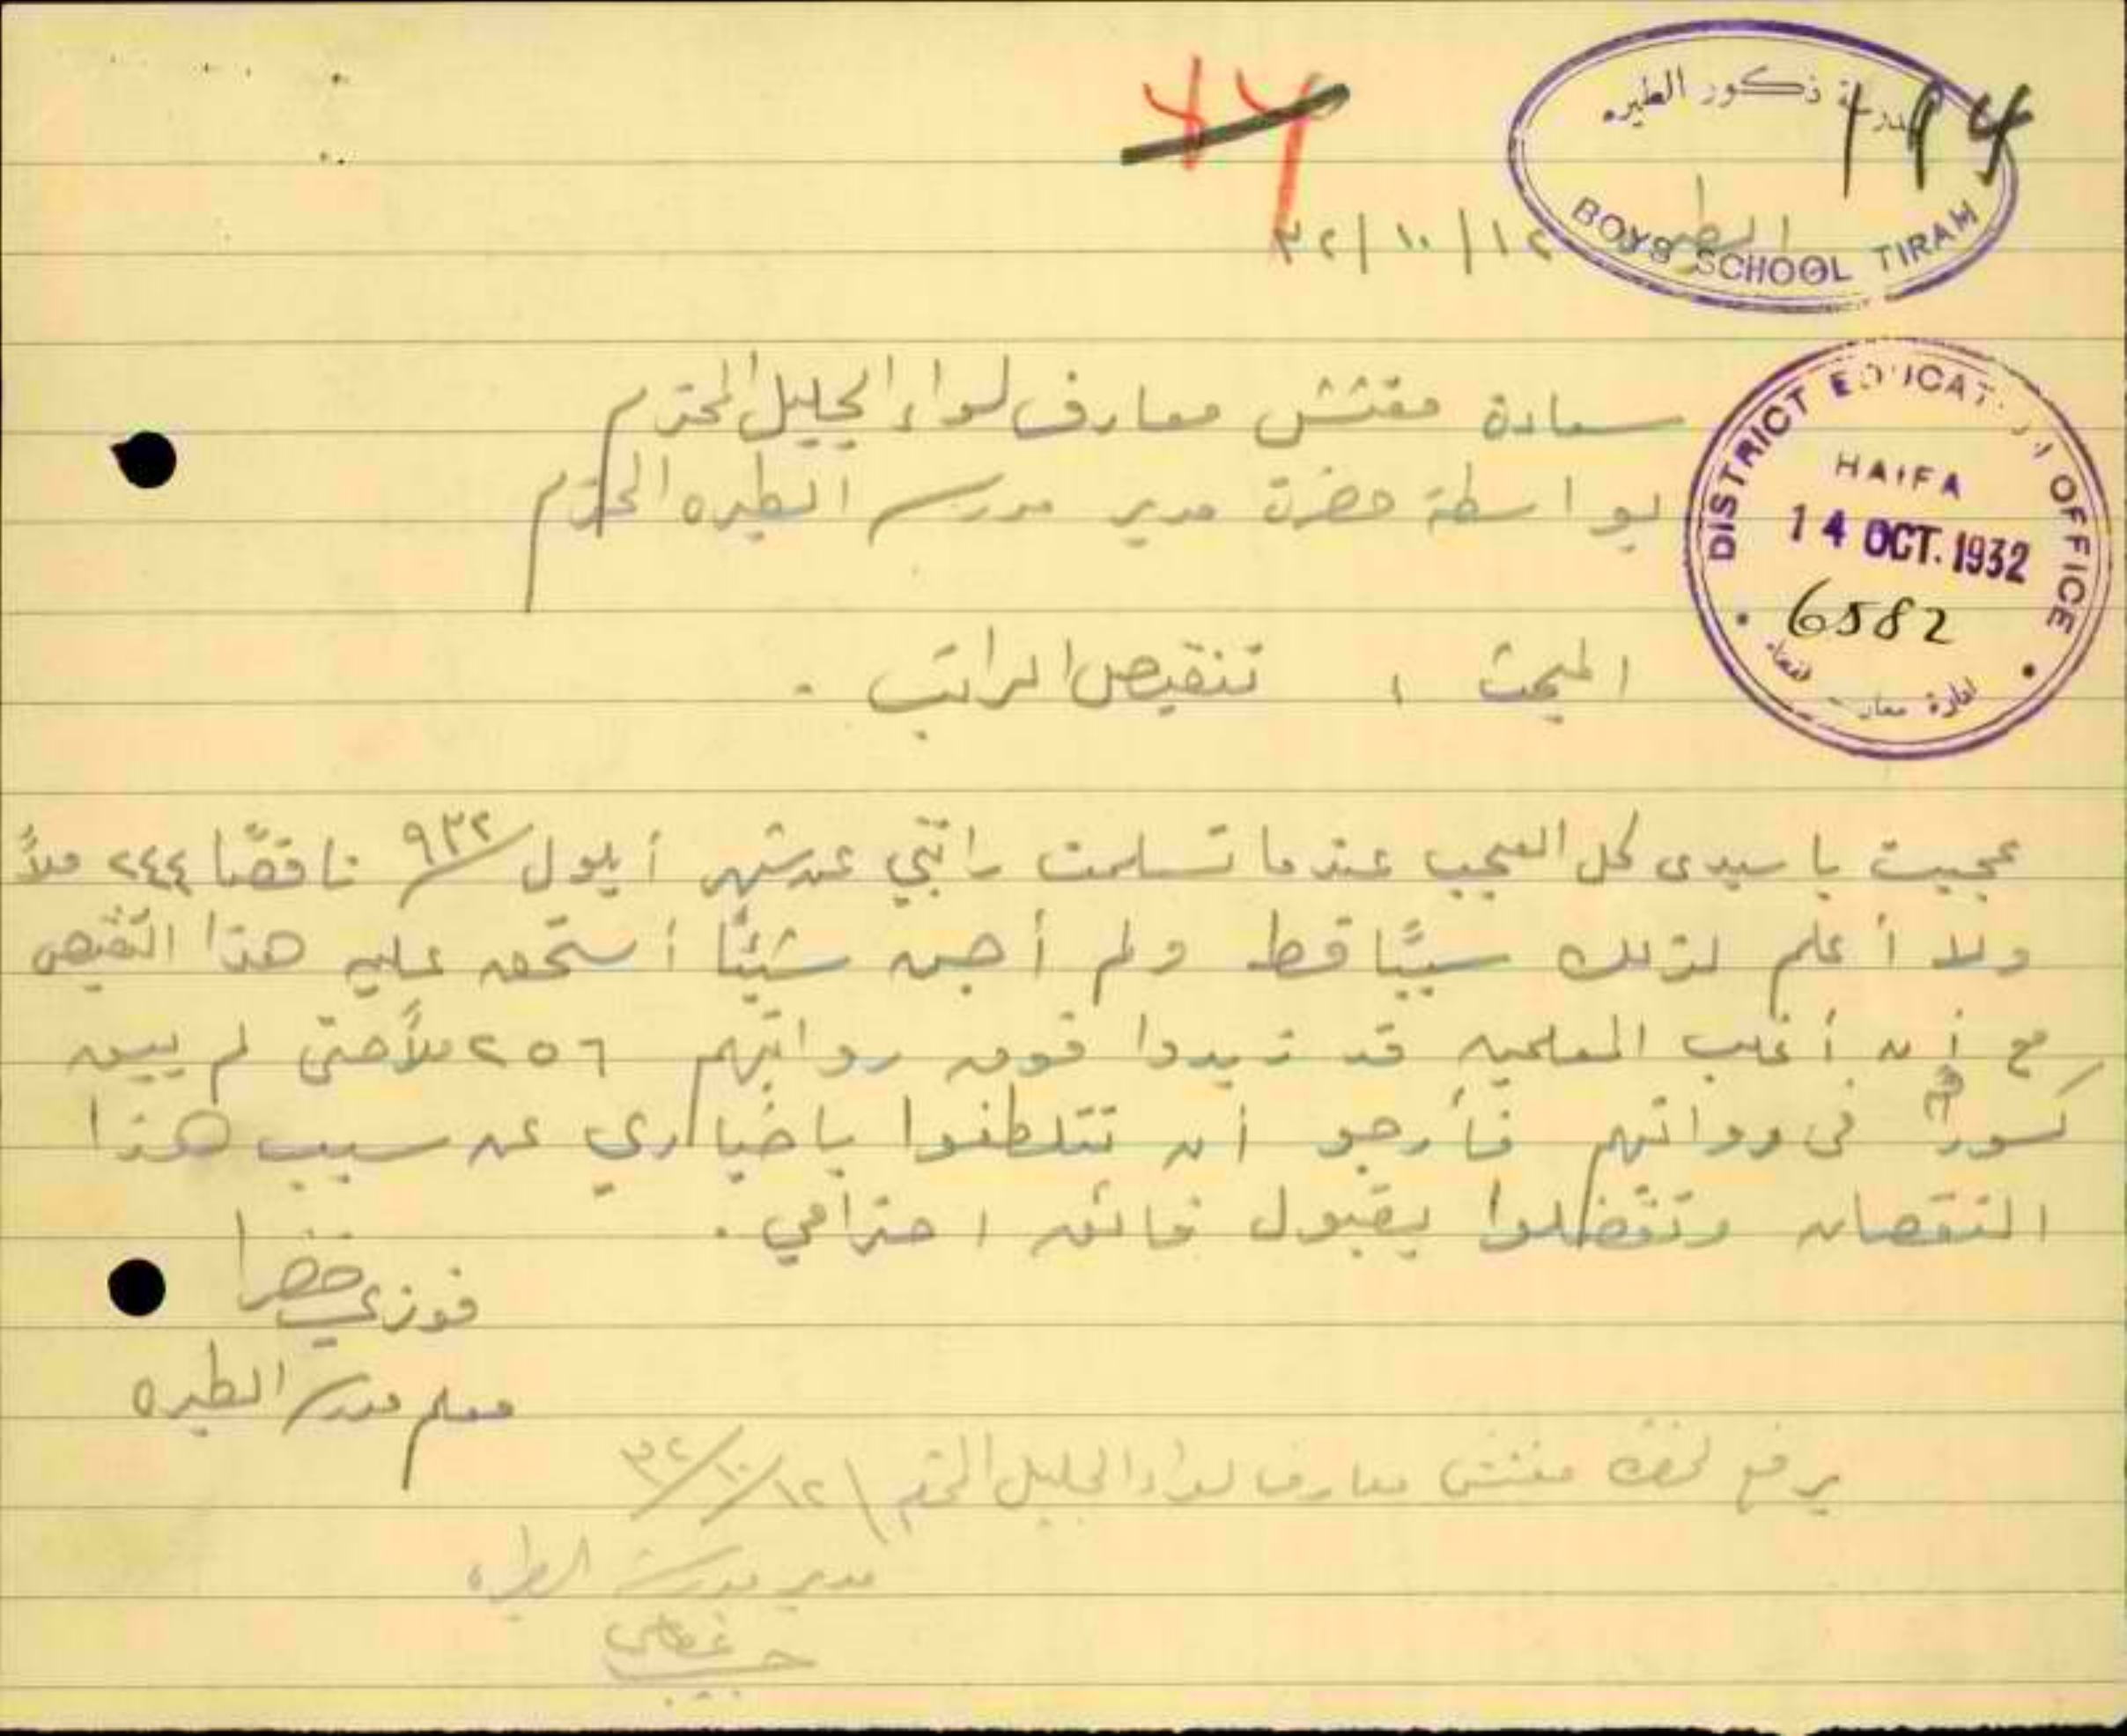 مدرسة ذكور الطيره
194
BOYS SCHOOL TIRAH
الطيره ٣٢/١٠/١٢
DISTRICT EDUCATION OFFICE
HAIFA
14 OCT. 1932
6582
ادارة معارف
سعادة مفتش معارف لواء الجليل المحترم
بواسطة حضرة مدير مدرسة الطيره المحترم
المبحث : تنقيص الراتب .
عجبت يا سيدى كل العجب عندما تسلمت راتبي عن شهر أيلول ٩٣٢ ناقصًا ٢٤٤ ملاً
ولا أعلم لذلك سببًا قط ولم أجن شيئًا أستحق عليه هذا التنقيص
مع أن أغلب المعلمين قد زيدوا فوق رواتبهم ٢٥٦ ملاً حتى لم يبق
كسور في رواتبهم فأرجو أن تتلطفوا باخباري عن سبب هذا
النقصان وتتفضلوا بقبول فائق احترامي .
فوزي خضرا
معلم مدرسة الطيره
يرفع لحضرة مفتش معارف لواء الجليل المحترم ٣٢/١٠/١٢
مدير مدرسة الطيره
حبيب